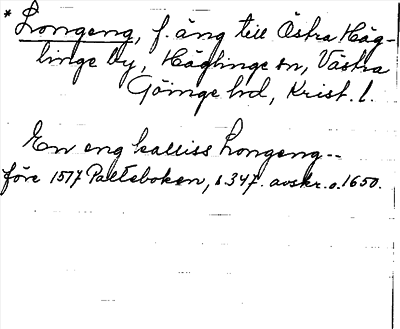 * Longeng, f. äng till Östra Häg-
linge by, Häglinge sn, Västra
Göinge hd, Krist. l.
En eng kalliss Longeng--
före 1517 Palteboken, s 347. avskr. o. 1650.